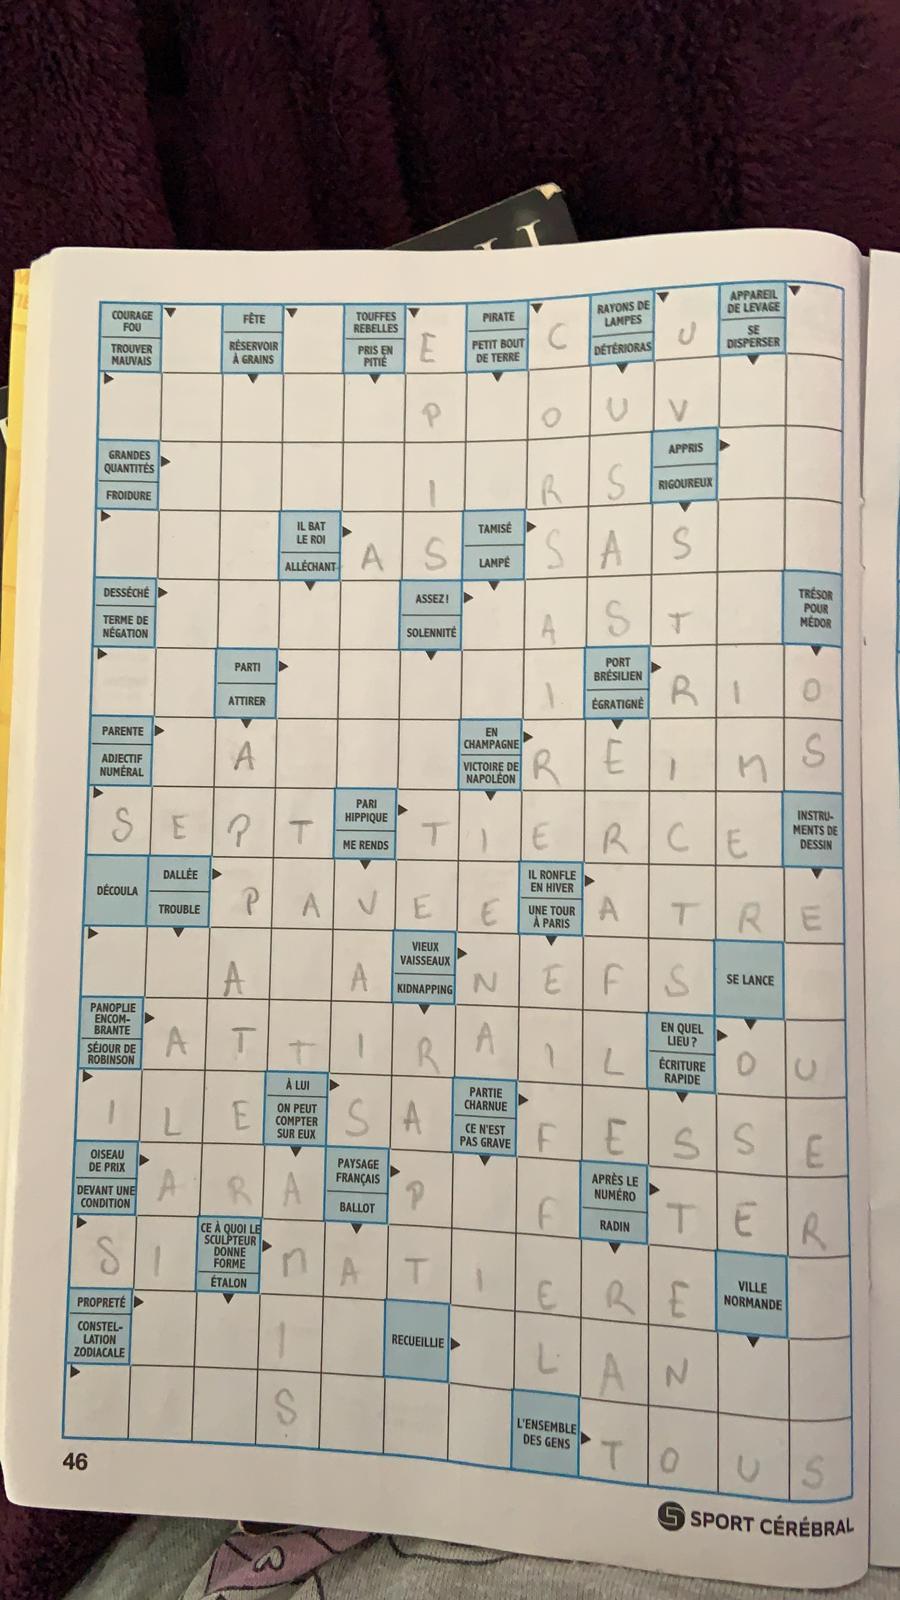 COURAGE FOU
TROUVER MAUVAIS
FÊTE
RÉSERVOIR À GRAINS
TOUFFES REBELLES
PRIS EN PITIÉ
E
PIRATE
PETIT BOUT DE TERRE
C
RAYONS DE LAMPES
DÉTÉRIORAS
U
APPAREIL DE LEVAGE
SE DISPERSER
P O U V
GRANDES QUANTITÉS
FROIDURE
I R S
APPRIS
RIGOUREUX
IL BAT LE ROI
ALLÉCHANT
A S
TAMISÉ
LAMPÉ
S A S
DESSÉCHÉ
TERME DE NÉGATION
ASSEZ!
SOLENNITÉ
A S T
TRÉSOR POUR MÉDOR
PARTI
ATTIRER
I
PORT BRÉSILIEN
ÉGRATIGNÉ
R I O
PARENTE
ADJECTIF NUMÉRAL
A
EN CHAMPAGNE
VICTOIRE DE NAPOLÉON
R E I M S
S E P T
PARI HIPPIQUE
ME RENDS
T I E R C E
INSTRU-
MENTS DE
DESSIN
DÉCOULA
DALLÉE
TROUBLE
P A V E E
IL RONFLE EN HIVER
UNE TOUR À PARIS
A T R E
A A
VIEUX VAISSEAUX
KIDNAPPING
N E F S
SE LANCE
PANOPLIE ENCOM-
BRANTE
SÉJOUR DE ROBINSON
A T T I R A I L
EN QUEL LIEU ?
ÉCRITURE RAPIDE
O U
I L E
À LUI
ON PEUT COMPTER SUR EUX
S A
PARTIE CHARNUE
CE N'EST PAS GRAVE
F E S S E
OISEAU DE PRIX
DEVANT UNE CONDITION
A R A
PAYSAGE FRANÇAIS
BALLOT
P F
APRÈS LE NUMÉRO
RADIN
T E R
S I
CE À QUOI LE SCULPTEUR DONNE FORME
ÉTALON
M A T I E R E
VILLE NORMANDE
PROPRETÉ
CONSTEL-
LATION
ZODIACALE
I
RECUEILLIE
L A N
S
L'ENSEMBLE DES GENS
T O U S
46
SPORT CÉRÉBRAL